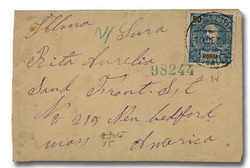 Illma Snra
Rita Aurelia
Sand Front. St
No 219 New Bedford
mass
America
98244
50